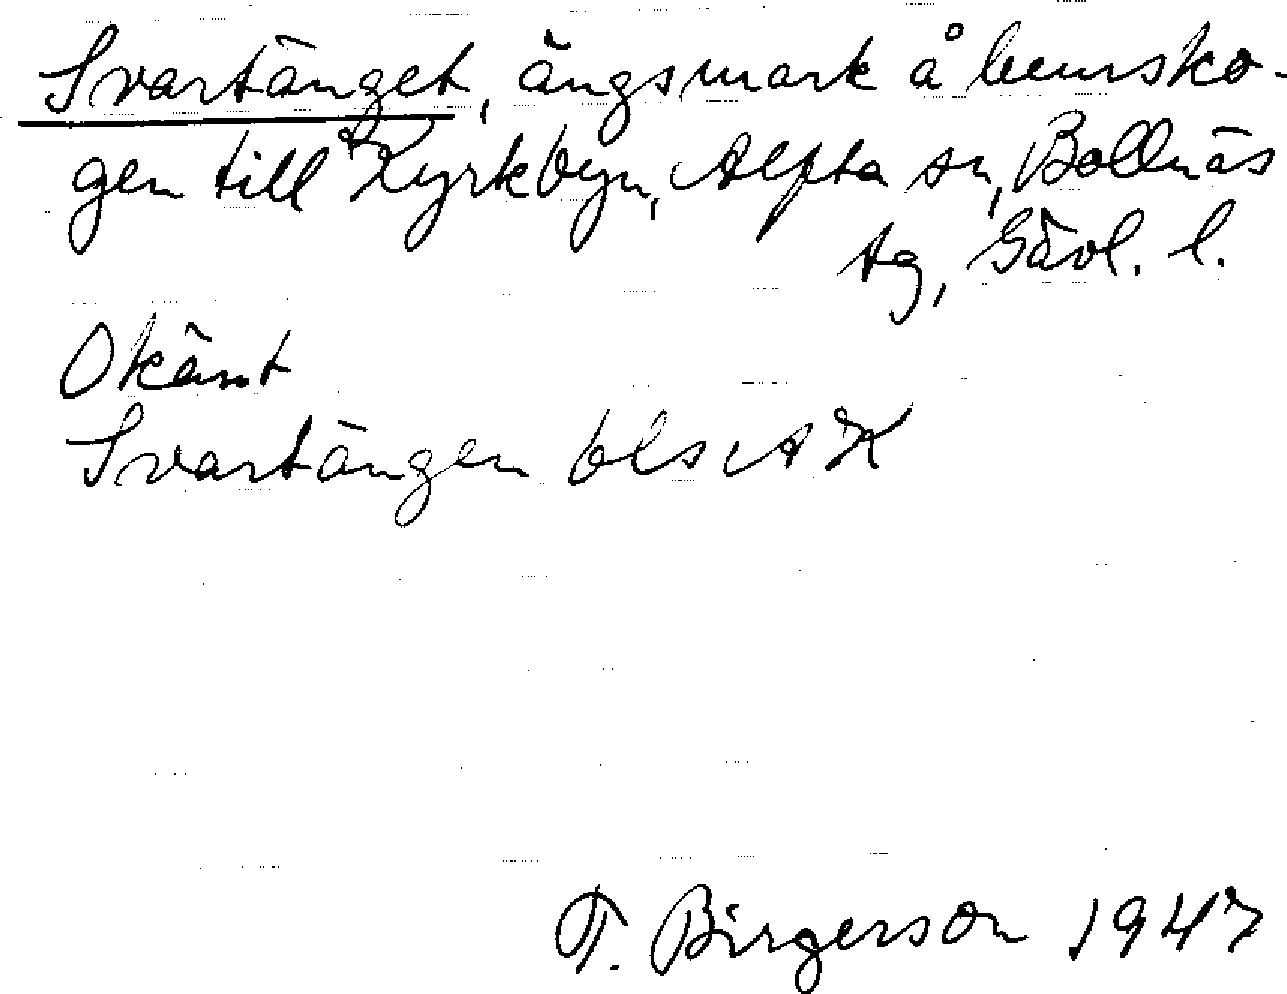 Svartänget, ängsmark å hemsko-
gen till Kyrkbyn, Alfta sn, Bollnäs
tg, Gävl. l.
Okänt
Svartängen bls AK
T. Birgerson 1947